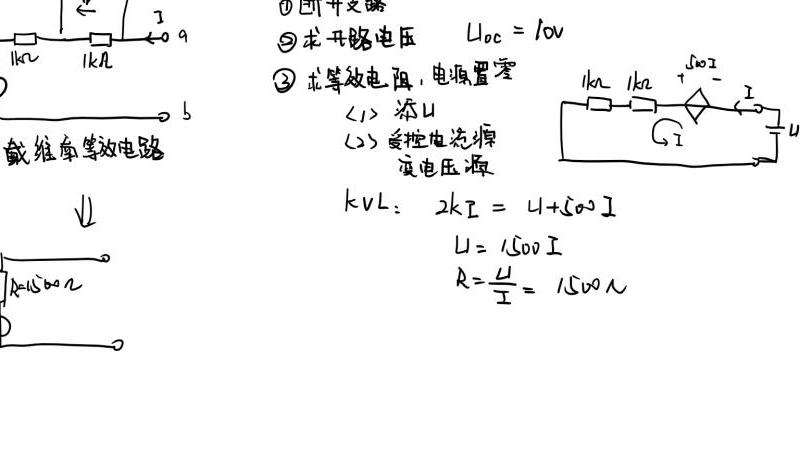 I
a
1kΩ
1kΩ
b
戴维南等效电路
R=1500Ω
①断开支路
②求开路电压 Uoc = 10V
③求等效电阻，电源置零
<1> 添U
<2> 受控电流源
变电压源
1kΩ 1kΩ + 500I - I
I
U
KVL: 2kI = U+500I
U = 1500I
R = U/I = 1500Ω